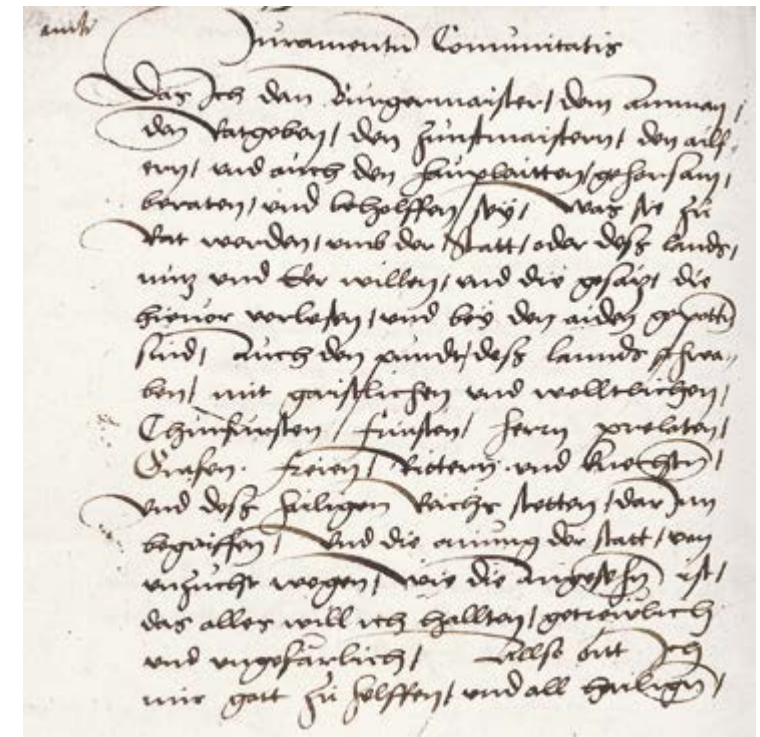 Juramentu Comunitatis
Das Ich dem Burgermaister / dem amman /
den Ratgeben / den Zunftmaistern / den ailf-
ern / und auch den haubtleitten / gehorsam /
beraten / und beholffen sey / was sie zu
Rat werden / umb der Statt / oder deß lands /
nutz und Eer willen / und die gesatzt die
hievor verlesen / und bey den aiden gepotten
sind / Auch den pundt / deß lannds schwa-
ben / mit gaistlichen und welltlichen /
Churfursten / Fursten / herrn prelaten /
Grafen. Freien / Rittern und knechten /
Und deß hailigen Reichs stetten / dar Inn
begriffen / Und die ainung der statt / von
unzucht wegen / wie die Angesehen ist /
das alles will ich hallten / getrewlich
und ungefarlich / Allso bitt Ich
mir gott zu helffen / und all hailigen /